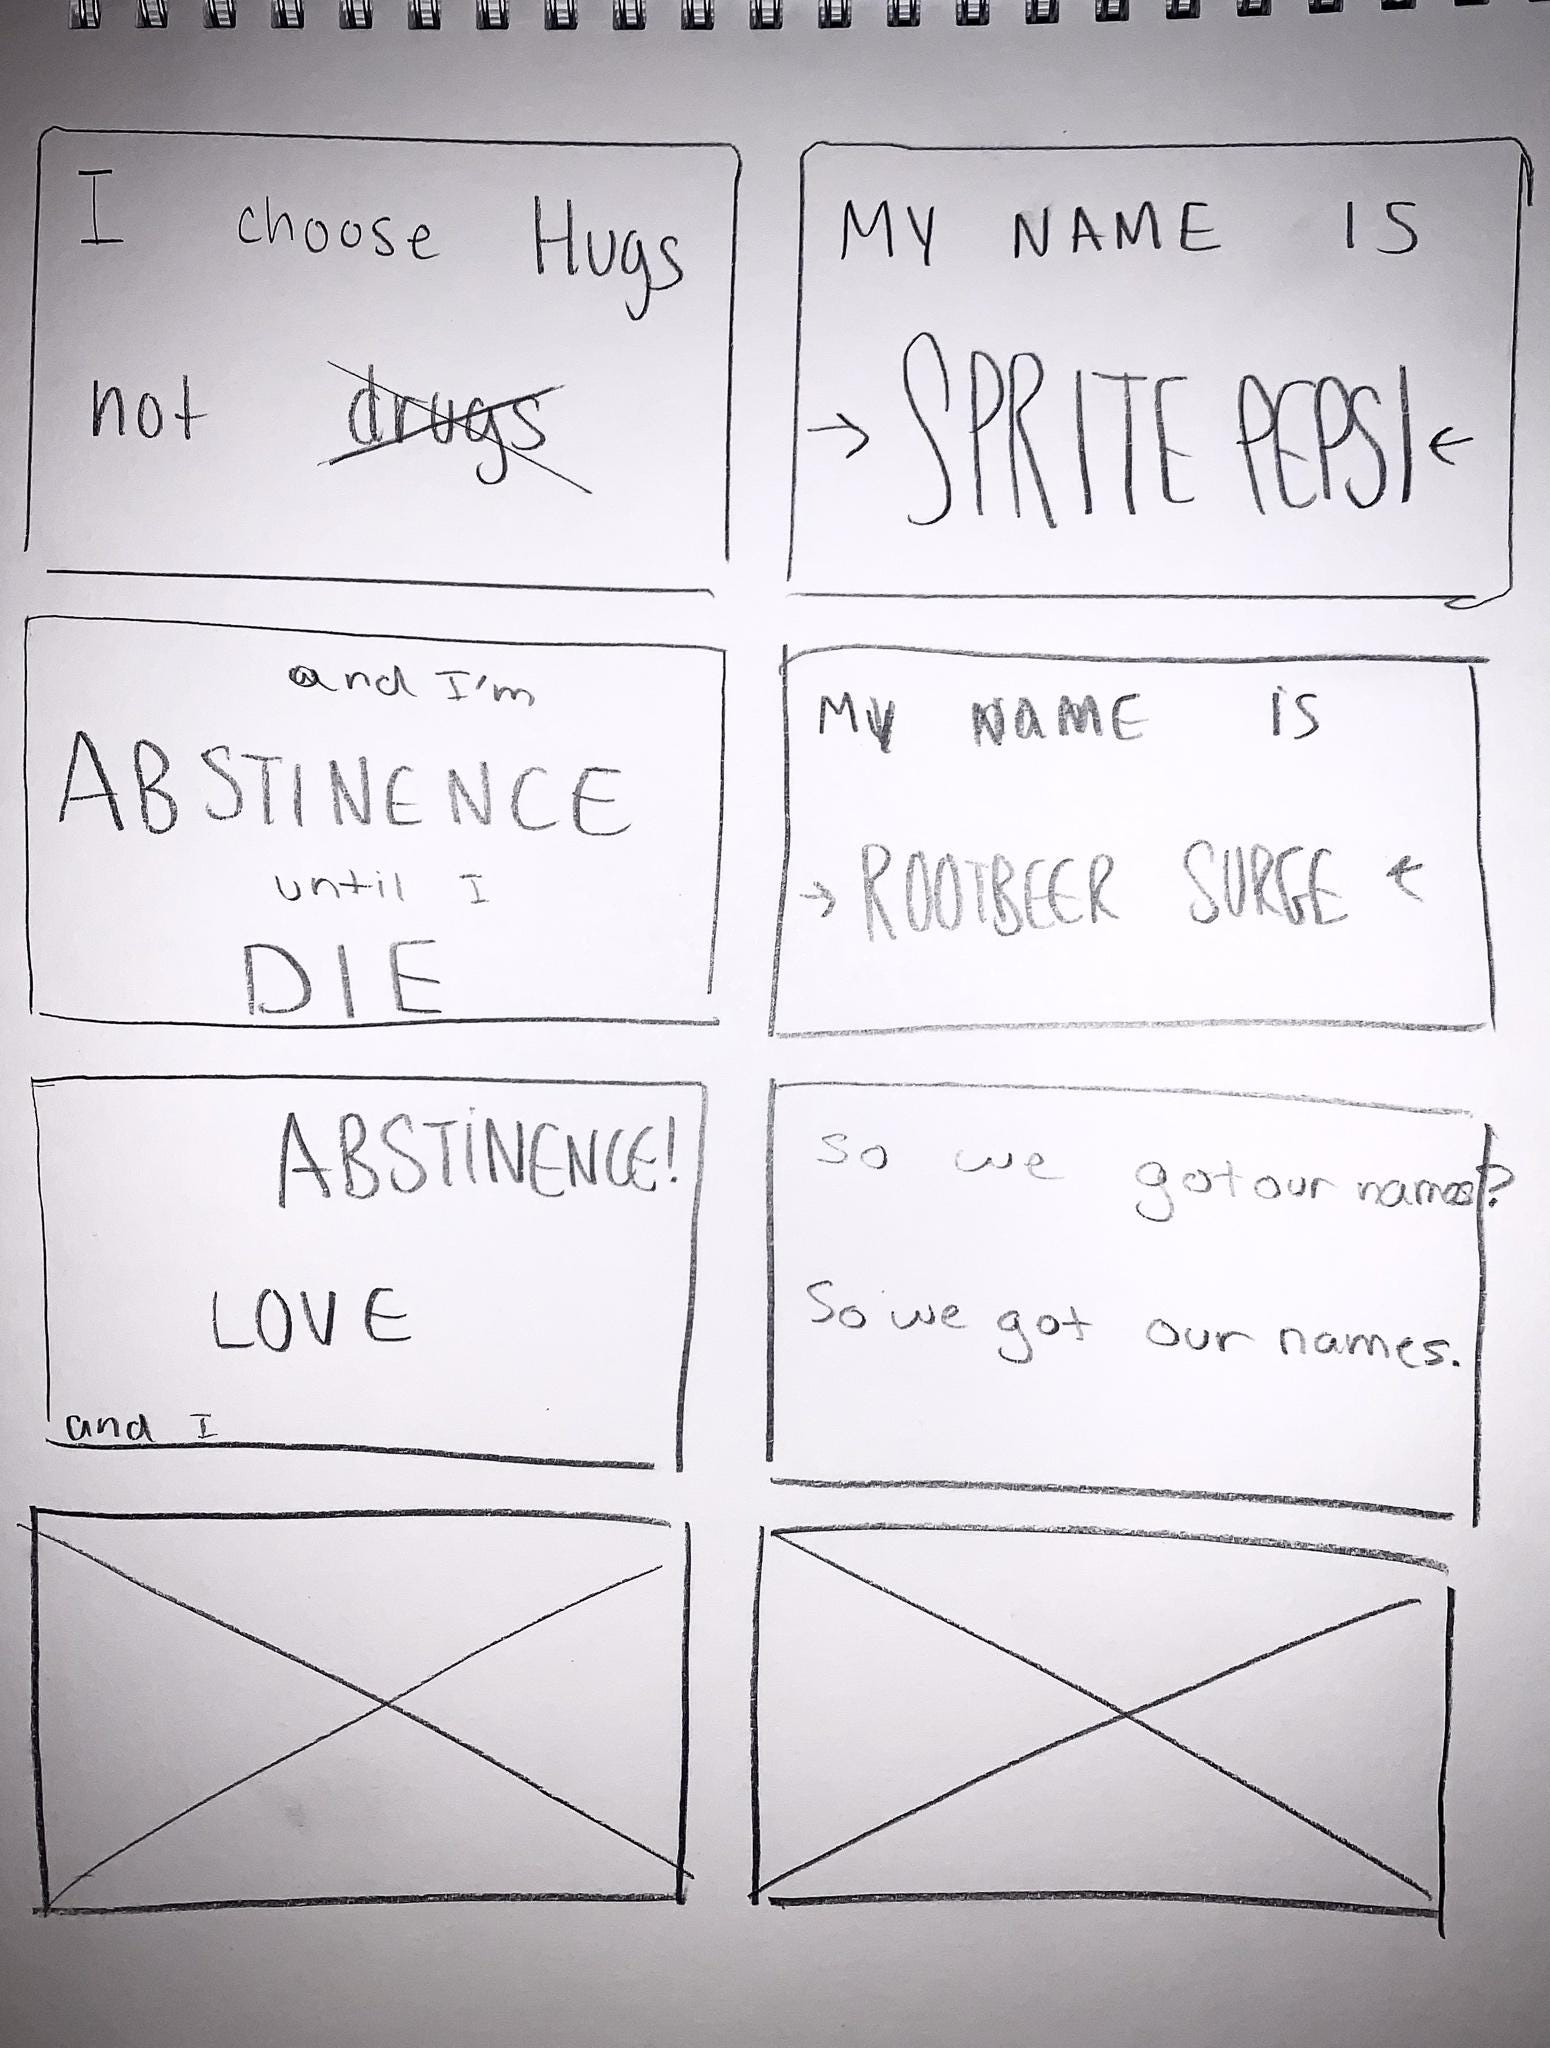 I choose Hugs
not drugs
MY NAME IS
→ SPRITE PEPSI ←
and I'm
ABSTINENCE
until I
DIE
MY NAME IS
→ ROOTBEER SURGE ←
ABSTINENCE!
LOVE
and I
so we got our names?
So we got our names.